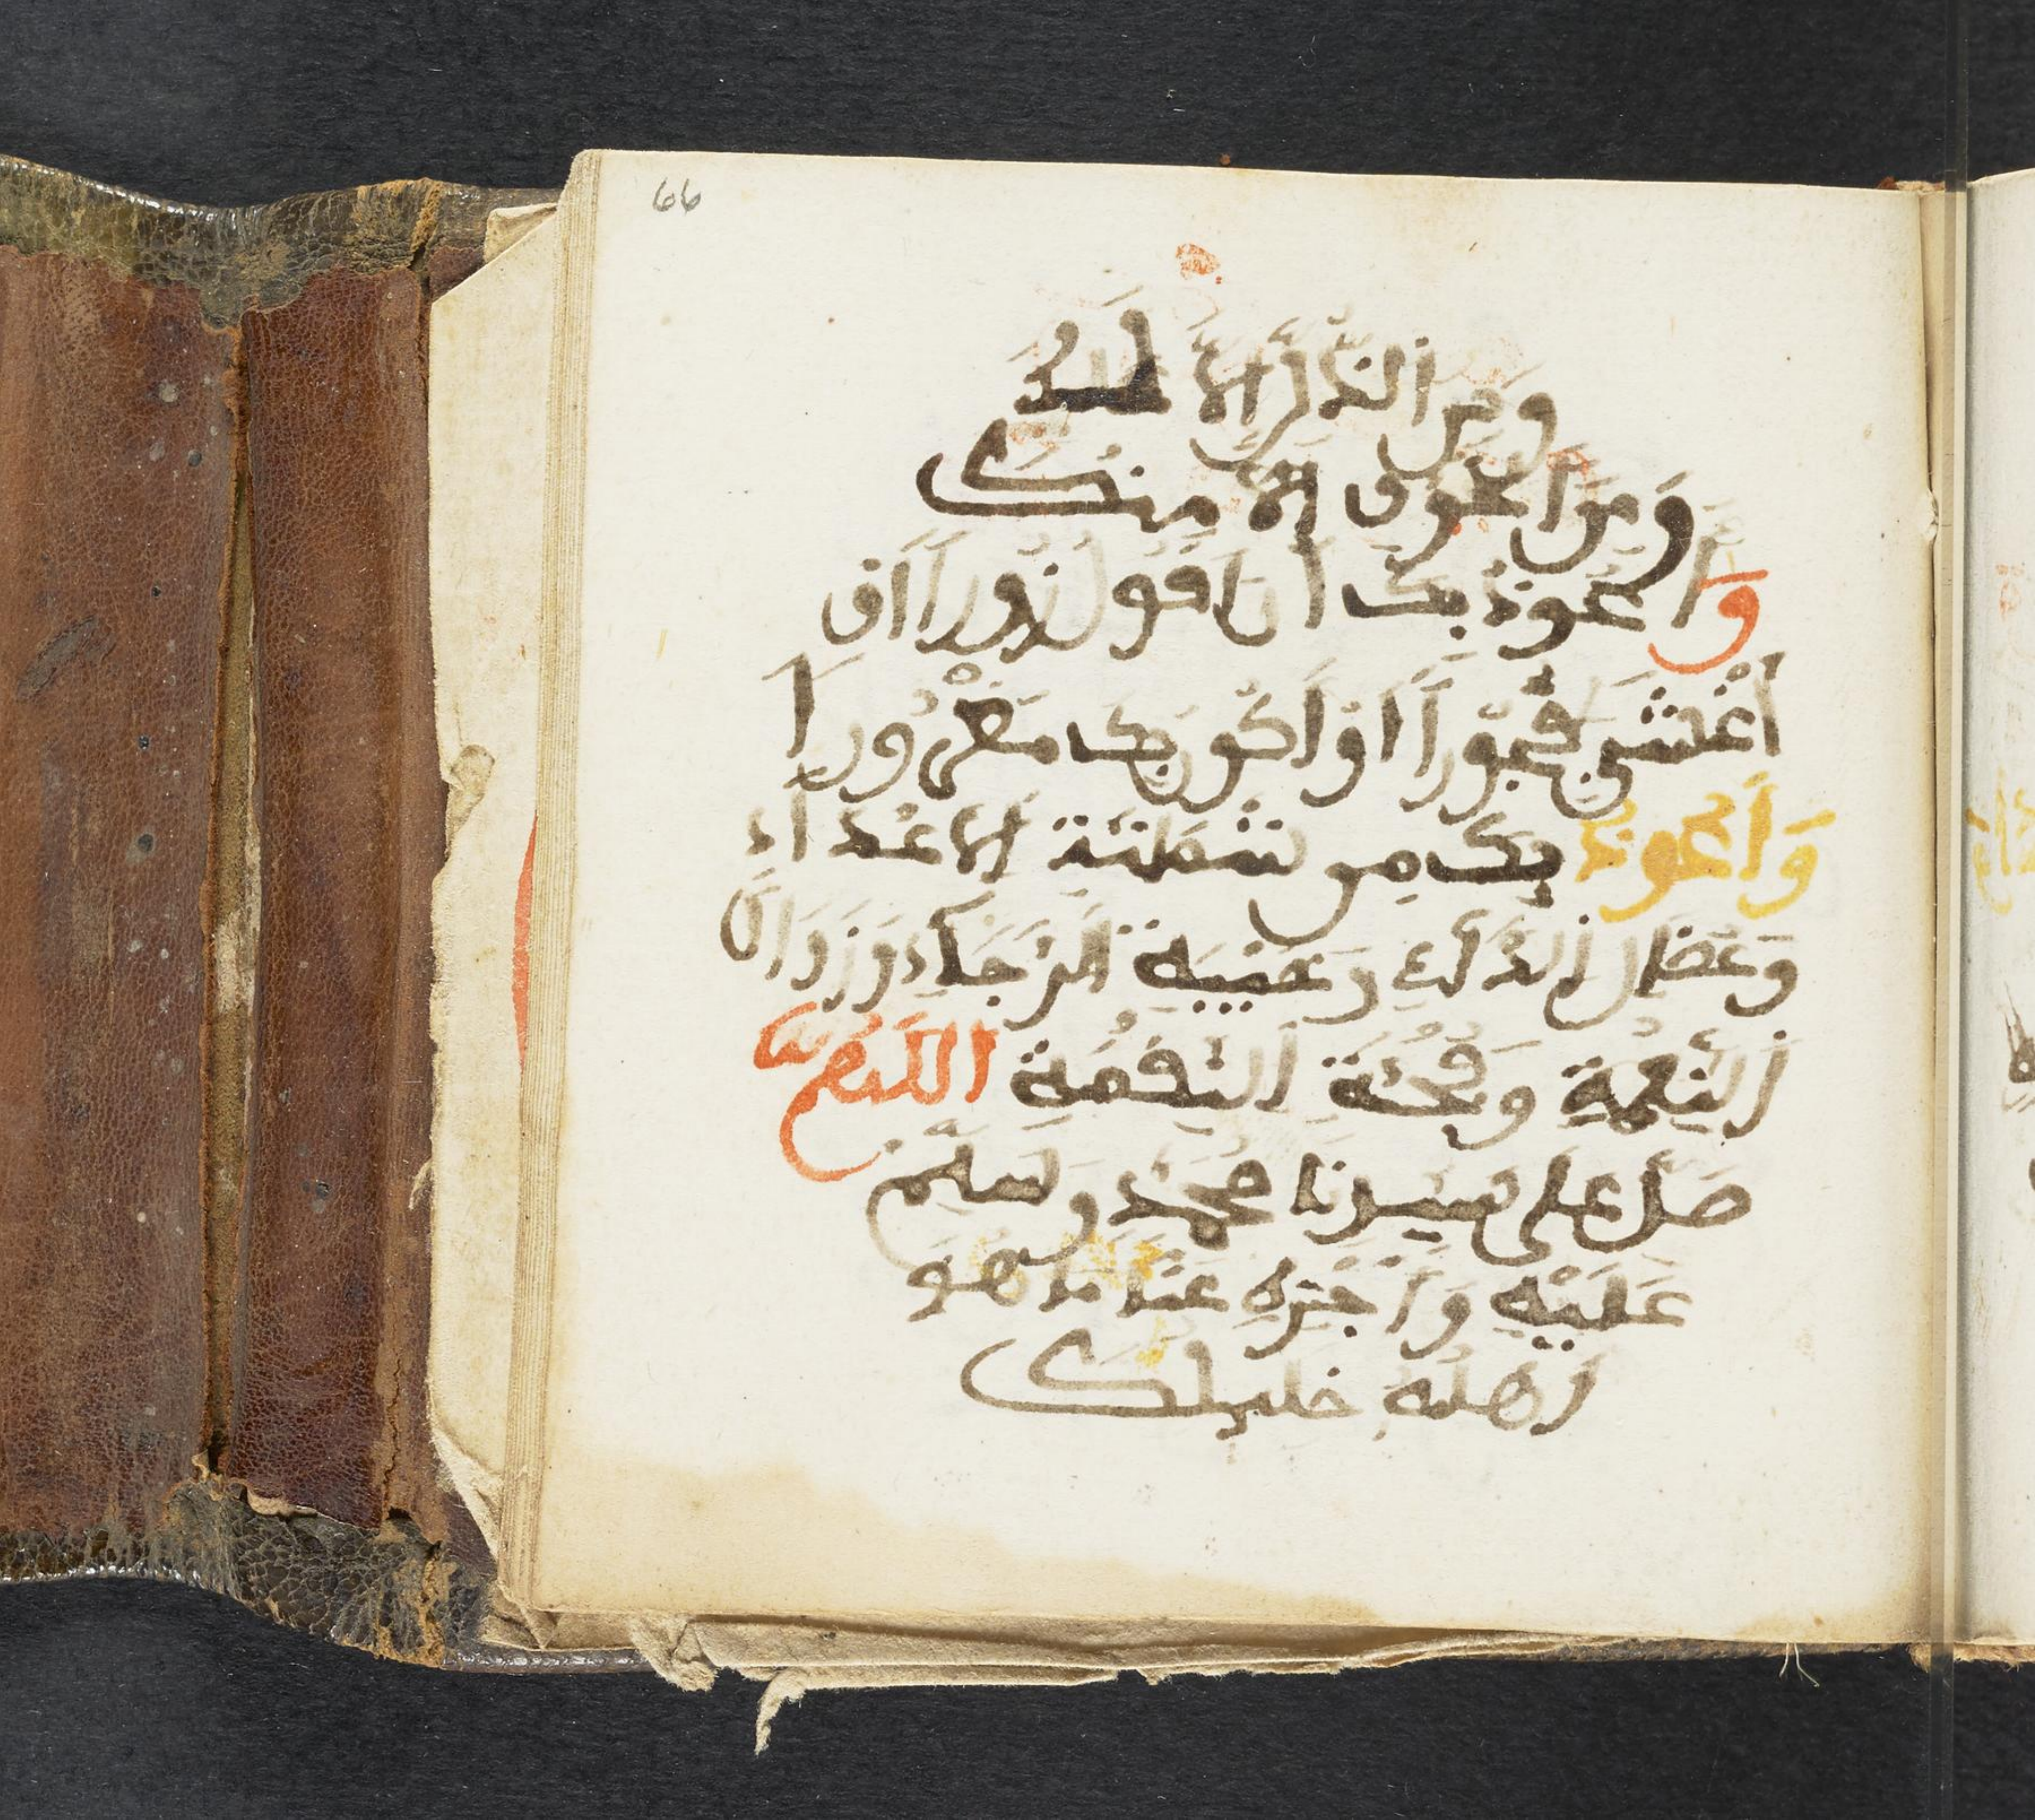 66
ومن الذل الا لك
ومن الخوف الا منك
واعوذ بك ان اقول زورا او
اغشى فجورا او اكون بك مغرورا
واعوذ بك من شماتة الاعداء
وعضال الداء وخيبة الرجاء وزوال
النعمة وفجئة النقمة اللهم
صل على سيدنا محمد وسلم
عليه واجزه عنا ما هو
اهله خليلك